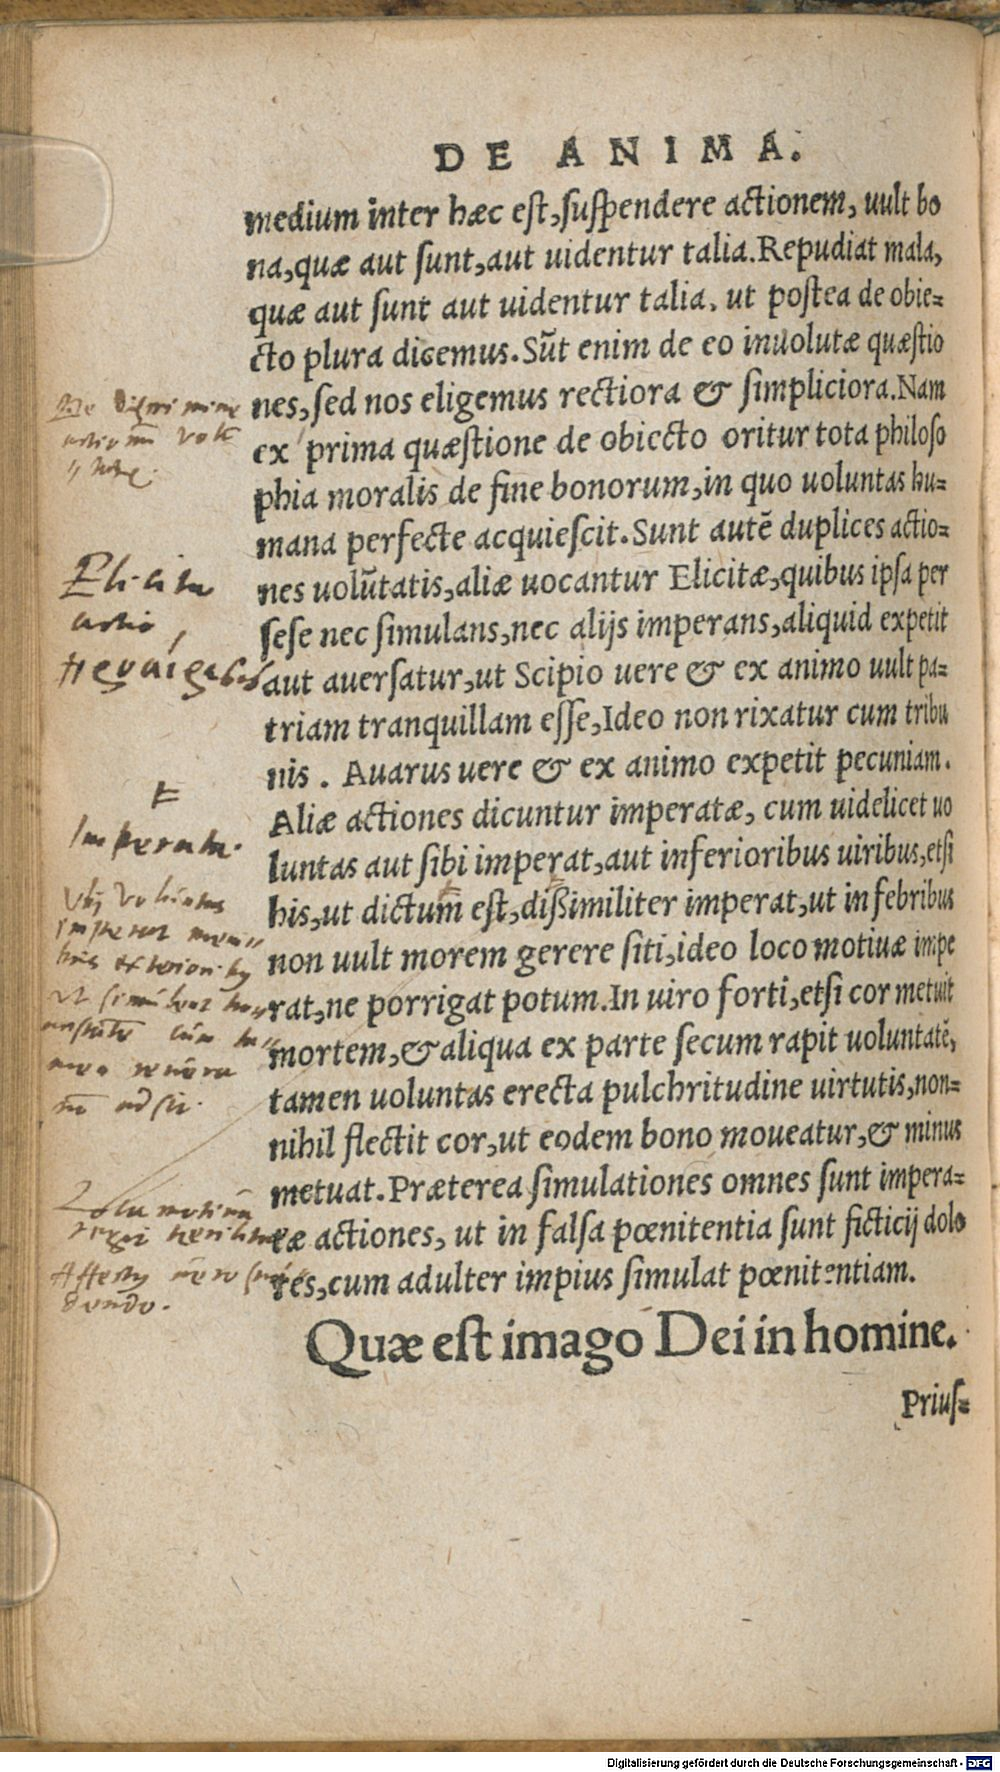 DE ANIMA.
medium inter hæc est, suspendere actionem, uult bo
na, quæ aut sunt, aut uidentur talia. Repudiat mala,
quæ aut sunt aut uidentur talia, ut postea de obie=
cto plura dicemus. Sūt enim de eo inuolutæ quæstio
nes, sed nos eligemus rectiora & simpliciora. Nam
ex prima quæstione de obiecto oritur tota philoso
phia moralis de fine bonorum, in quo uoluntas hu=
mana perfecte acquiescit. Sunt autē duplices actio=
nes uolūtatis, aliæ uocantur Elicitæ, quibus ipsa per
sese nec simulans, nec alijs imperans, aliquid expetit
aut auersatur, ut Scipio uere & ex animo uult pa=
triam tranquillam esse, Ideo non rixatur cum tribu
nis. Auarus uere & ex animo expetit pecuniam.
Aliæ actiones dicuntur imperatæ, cum uidelicet uo
luntas aut sibi imperat, aut inferioribus uiribus, etsi
his, ut dictum est, dißimiliter imperat, ut in febribus
non uult morem gerere siti, ideo loco motiuæ impe
rat, ne porrigat potum. In uiro forti, etsi cor metuit
mortem, & aliqua ex parte secum rapit uoluntatē,
tamen uoluntas erecta pulchritudine uirtutis, non=
nihil flectit cor, ut eodem bono moueatur, & minus
metuat. Præterea simulationes omnes sunt impera=
tæ actiones, ut in falsa pœnitentia sunt ficticij dolo
res, cum adulter impius simulat pœnitentiam.
Quæ est imago Dei in homine.
Prius=
Elicita
actio,
Imperata.
Digitalisierung gefördert durch die Deutsche Forschungsgemeinschaft - DFG